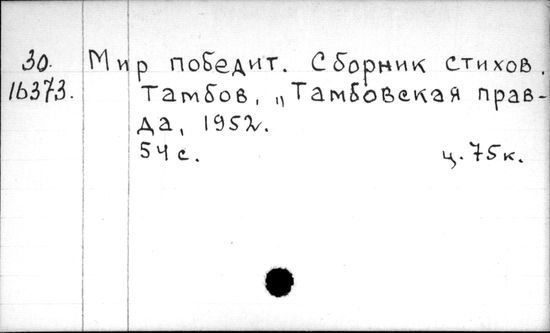 30. Мир победит. Сборник стихов.
16373. Тамбов, „Тамбовская прав-
да, 1952.
54 с. ц. 75 к.